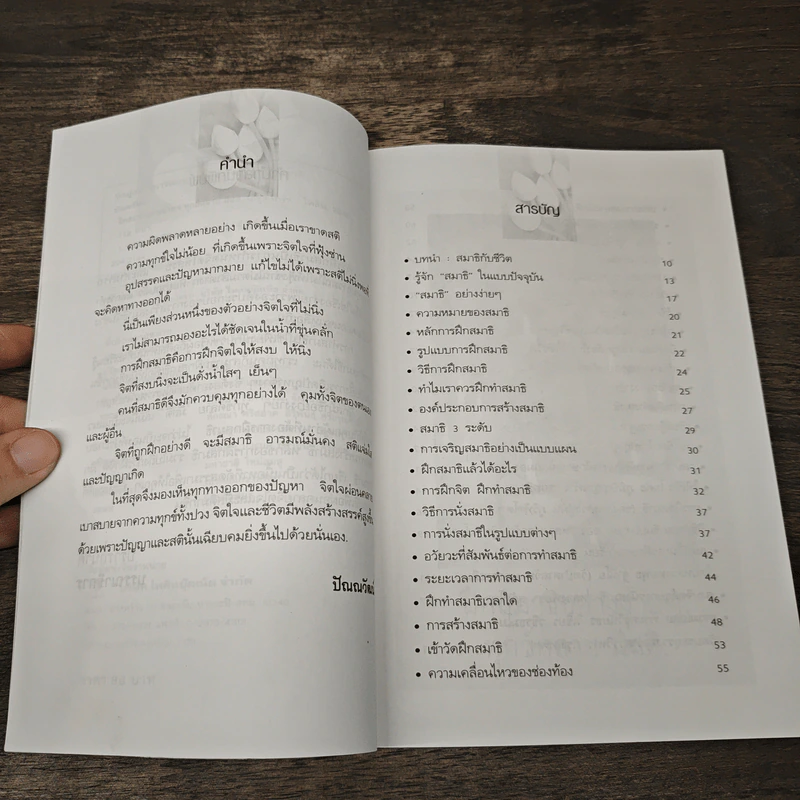 คำนำ
ความผิดพลาดหลายอย่าง เกิดขึ้นเมื่อเราขาดสติ
ความทุกข์ใจไม่น้อย ที่เกิดขึ้นเพราะจิตใจที่ฟุ้งซ่าน
อุปสรรคและปัญหามากมาย แก้ไขไม่ได้เพราะสติไม่นิ่งพอที่
จะคิดหาทางออกได้
นี่เป็นเพียงส่วนหนึ่งของตัวอย่างจิตใจที่ไม่นิ่ง
เราไม่สามารถมองอะไรได้ชัดเจนในน้ำที่ขุ่นคลั่ก
การฝึกสมาธิคือการฝึกจิตใจให้สงบ ให้นิ่ง
จิตที่สงบนิ่งจะเป็นดั่งน้ำใสๆ เย็นๆ
คนที่สมาธิดีจึงมักควบคุมทุกอย่างได้ คุมทั้งจิตของตนเอง
และผู้อื่น
จิตที่ถูกฝึกอย่างดี จะมีสมาธิ อารมณ์มั่นคง
และปัญญาเกิด
ในที่สุดจึงมองเห็นทุกทางออกของปัญหา จิตใจผ่อนคลาย
เบาสบายจากความทุกข์ทั้งปวง จิตใจและชีวิตมีพลังสร้างสรรค์สูงขึ้น
ด้วยเพราะปัญญาและสตินั้นเฉียบคมยิ่งขึ้นไปด้วยนั่นเอง.
ปัณณวัฒน์
สารบัญ
• บทนำ : สมาธิกับชีวิต 10
• รู้จัก "สมาธิ" ในแบบปัจจุบัน 13
• "สมาธิ" อย่างง่ายๆ 17
• ความหมายของสมาธิ 20
• หลักการฝึกสมาธิ 21
• รูปแบบการฝึกสมาธิ 22
• วิธีการฝึกสมาธิ 24
• ทำไมเราควรฝึกทำสมาธิ 25
• องค์ประกอบการสร้างสมาธิ 27
• สมาธิ 3 ระดับ 29
• การเจริญสมาธิอย่างเป็นแบบแผน 30
• ฝึกสมาธิแล้วได้อะไร 31
• การฝึกจิต ฝึกทำสมาธิ 32
• วิธีการนั่งสมาธิ 37
• การนั่งสมาธิในรูปแบบต่างๆ 37
• อวัยวะที่สัมพันธ์ต่อการทำสมาธิ 42
• ระยะเวลาการทำสมาธิ 44
• ฝึกทำสมาธิเวลาใด 46
• การสร้างสมาธิ 48
• เข้าวัดฝึกสมาธิ 53
• ความเคลื่อนไหวของช่องท้อง 55